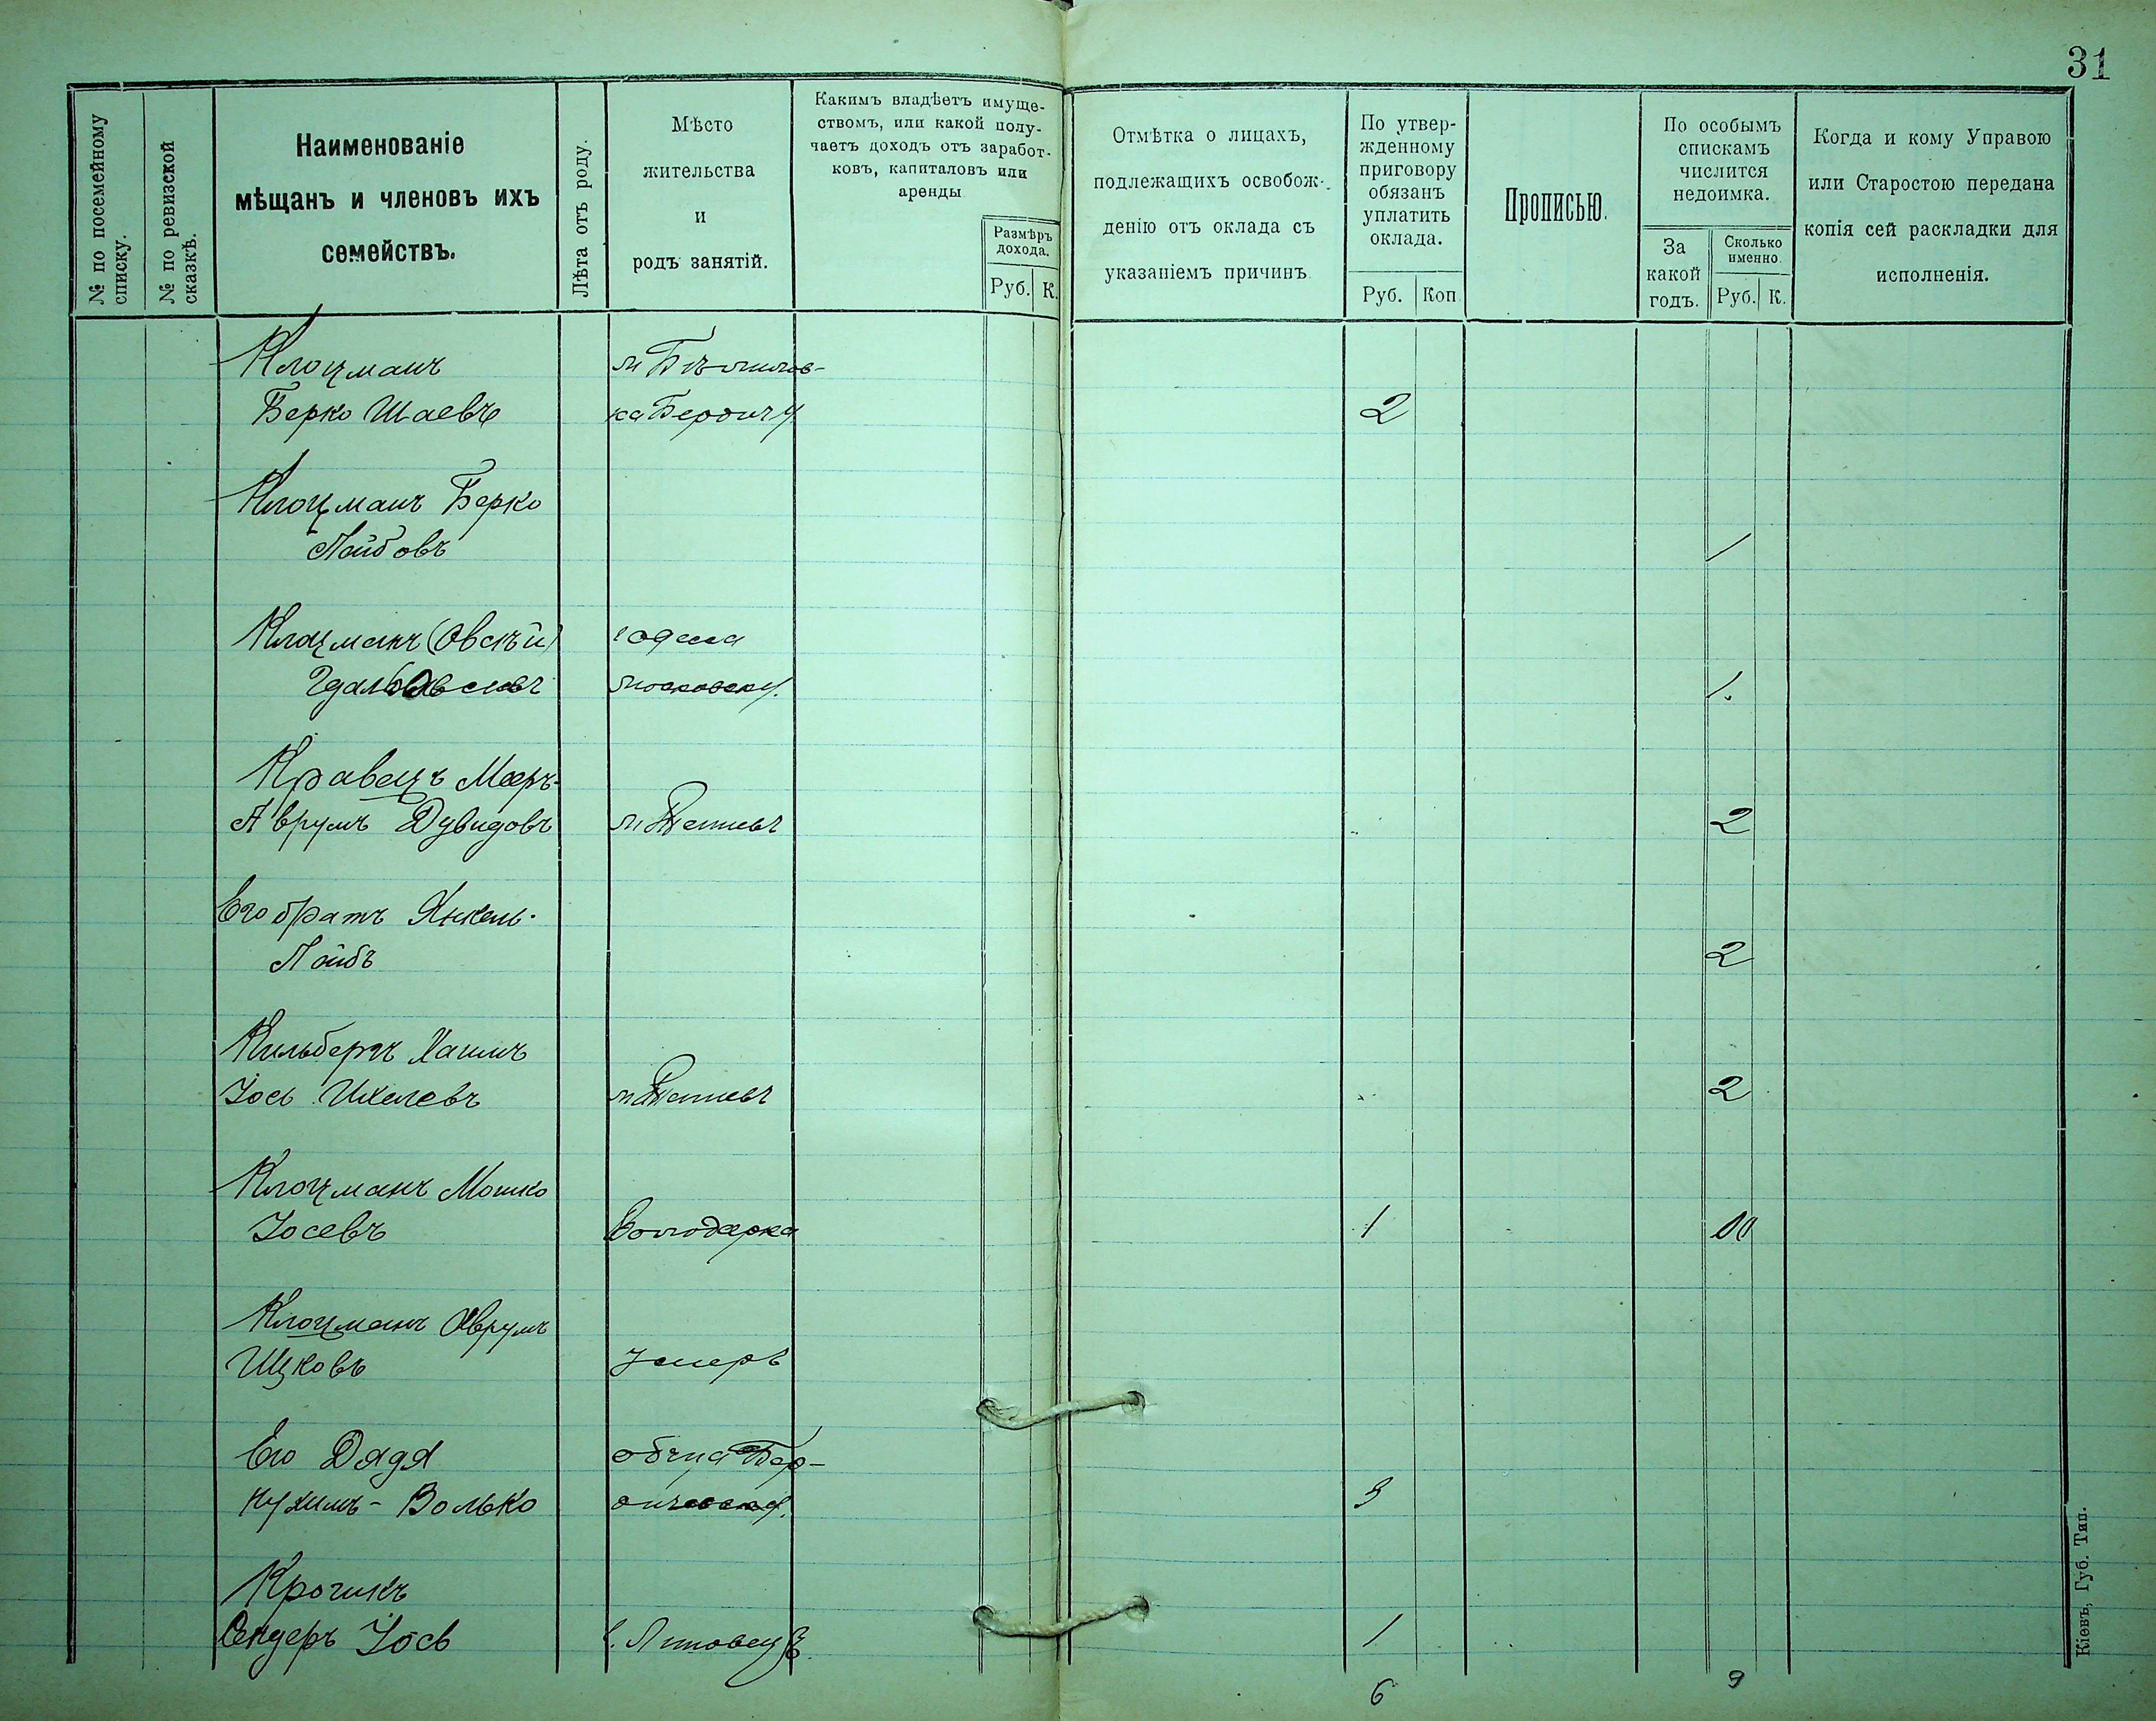 31
№ по посемейному списку.
№ по ревизской сказкѣ.
Наименованіе
мѣщанъ и членовъ ихъ
семействъ.
Лѣта отъ роду.
Мѣсто
жительства
и
родъ занятій.
Какимъ владѣетъ имуще-
ствомъ, или какой полу-
чаетъ доходъ отъ заработ-
ковъ, капиталовъ или
аренды
Размѣръ
дохода.
Руб. К.
Отмѣтка о лицахъ,
подлежащихъ освобож-
денію отъ оклада съ
указаніемъ причинъ
По утвер-
жденному
приговору
обязанъ
уплатить
оклада.
Руб. Коп
Прописью.
По особымъ
спискамъ
числится
недоимка.
За
какой
годъ.
Сколько
именно
Руб. К.
Когда и кому Управою
или Старостою передана
копія сей раскладки для
исполненія.
Клоцманъ м Бѣлилов-
Берко Шаевъ ка Бердич у. 2
Клоцманъ Берко
Лейбовъ 1
Клоцманъ (Овсѣй) г Одесса
1.
Кравецъ Мееръ-
Аврумъ Дувидовъ м 2
Его братъ Янкель-
Лейбъ 2
Кильбергъ Хаимъ
Іось Ихелевъ м 2
Клоцманъ Мошко
Іосевъ Володарка 1
Клоцманъ Аврумъ
Ицковъ Умеръ
Его Дядя Бер-
Нухимъ-Волько 3
Крочикъ
Сендеръ Іось 1
6 9
Кіевъ, Губ. Тип.